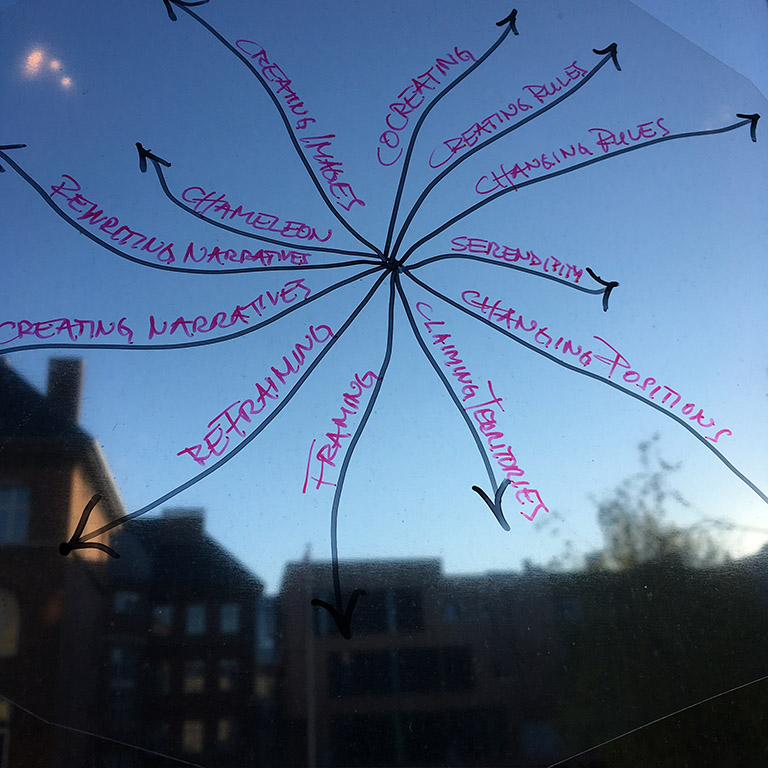 CREATING IMAGES
COCREATING
CREATING RULES
CHANGING RULES
SERENDIPITY
CHANGING POSITIONS
CLAIMING TERRITORIES
FRAMING
REFRAIMING
CREATING NARRATIVES
REWRITING NARRATIVES
CHAMELEON